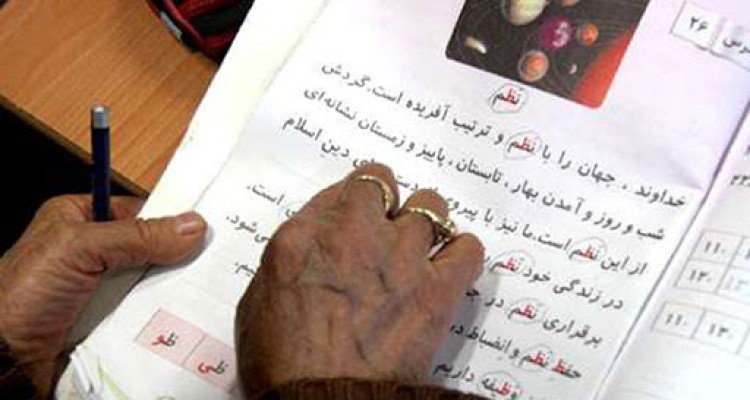 درس ۲۶
نظم
خداوند ، جهان را با نظم و ترتیب آفریده است.گردش
شب و روز و آمدن بهار ، تابستان ، پاییز و زمستان نشانه ای
از این نظم است.ما نیز با پیروی دین اسلام
در زندگی خود نظم است.
برقراری نظم در
حفظ نظم و انضباط
وظیفه داریم
ظی ظو
۱۱۰
۱۳۰
۱۱۰ ۱۳۰